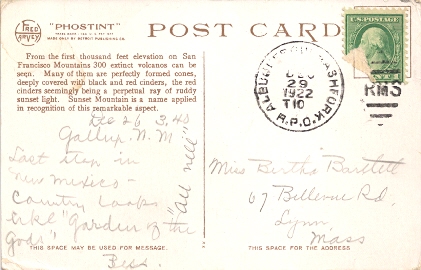 FRED HARVEY
"PHOSTINT"
TRADE MARK REG. U.S. PAT. OFF.
MADE ONLY BY DETROIT PUBLISHING CO.
POST CARD
U.S. POSTAGE
From the first thousand feet elevation on San
Francisco Mountains 300 extinct volcanos can be
seen. Many of them are perfectly formed cones,
deeply covered with black and red cinders, the red
cinders seemingly being a perpetual ray of ruddy
sunset light. Sunset Mountain is a name applied
in recognition of this remarkable aspect.
DEC
29
1922
T10
R.P.O.
RMS
Dec 26 3.40
Gallup. N. M
Last stop in
New Mexico -
Country looks
like "Garden of the
Gods"
Bess.
"All well"
Miss Bertha Bartlett
67 Bellevue Rd.
Lynn
Mass
THIS SPACE MAY BE USED FOR MESSAGE.
THIS SPACE IS FOR THE ADDRESS